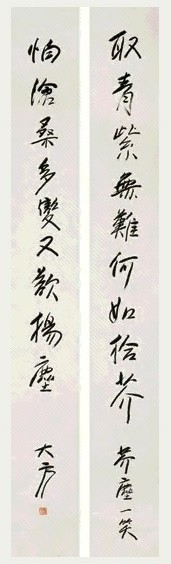 取青紫無難何如拾芥 芥塵一笑
怕滄桑多變又歎揚塵 大方